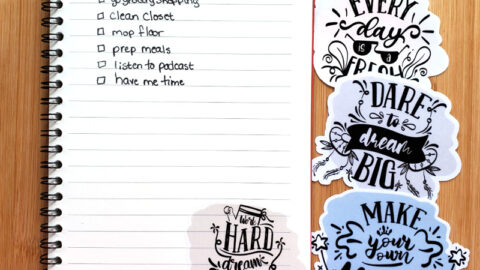 go grocery shopping
clean closet
mop floor
prep meals
listen to podcast
have me time
Work
HARD
dream
EVERY
day
IS A
FRESH
DARE
to
dream
BIG
MAKE
your
own